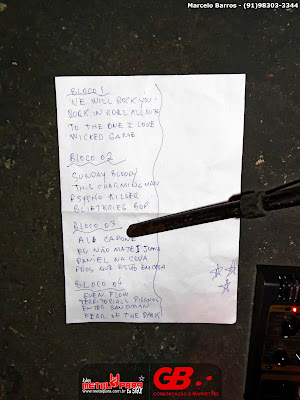 Marcelo Barros - (91)98303-3344
BLOCO 1
WE WILL ROCK YOU
ROCK IN ROLL ALL NIX
TO THE ONE I LOVE
WICKED GAME
BLOCO 02
SUNDAY BLOODY
THIS CHARMING MAN
PSYCHO KILLER
BLIETKRIEG BOP
BLOCO 03
AL CAPONE
EU NÃO MATEI JOANA
DANIEL NA COVA
BLOCO 04
EVEN FLOW
TERRITORIAL PISSINGS
ENTER SANDMAN
FEAR OF THE DARK
METAL PARÁ
GB
COMUNICAÇÃO & MARKETING